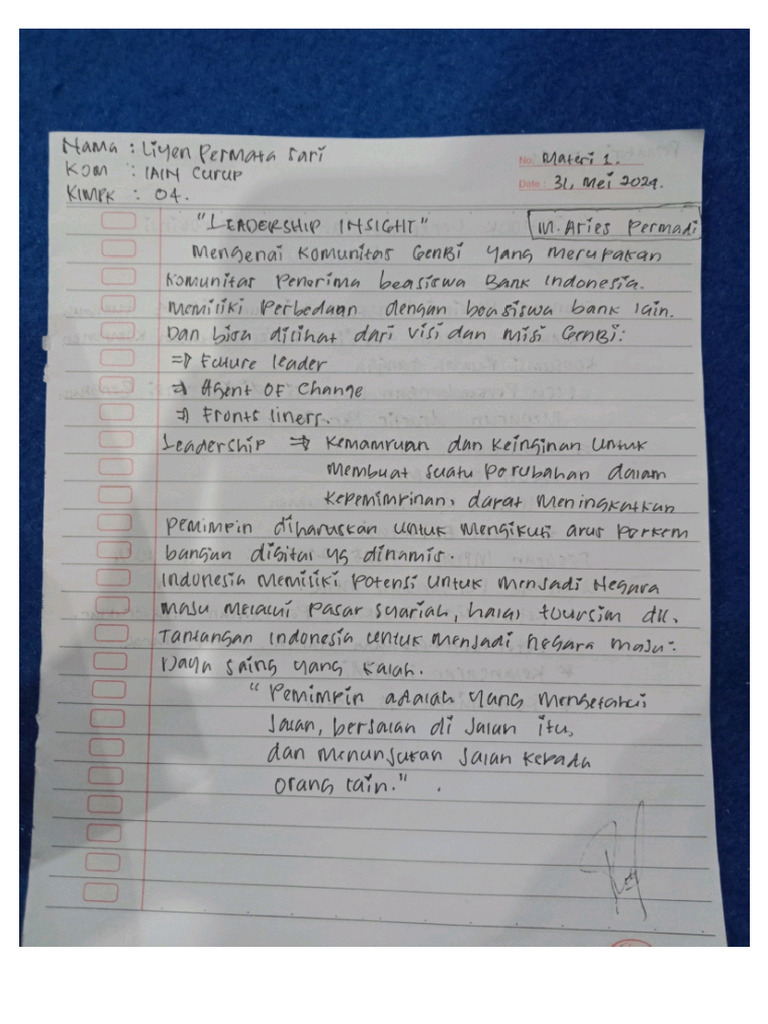 Nama : Liyen Permata Sari
KOM : IAIN Curup
KLMPK : 04.
No. Materi 1.
Date : 31, Mei 2024.
"LEADERSHIP INSIGHT"
M. Aries Permadi
Mengenai Komunitas GenBI yang merupakan
Komunitas Penerima beasiswa Bank Indonesia.
Memiliki Perbedaan dengan beasiswa bank lain.
Dan bisa dilihat dari Visi dan Misi GenBI:
=> Future leader
=> Agent Of Change
=> Fronts liners.
Leadership => Kemampuan dan Keinginan untuk
membuat suatu perubahan dalam
Kepemimpinan, dapat meningkatkan
Pemimpin diharuskan untuk mengikuti arus perkem
bangan digital yg dinamis.
Indonesia memiliki Potensi untuk menjadi Negara
maju melalui pasar syariah, halal toursim dll.
Tantangan Indonesia untuk menjadi negara maju :
Daya saing yang kalah.
"Pemimpin adalah yang mengetahui
Jalan, berjalan di Jalan itu,
dan menunjukan jalan kepada
orang lain." .